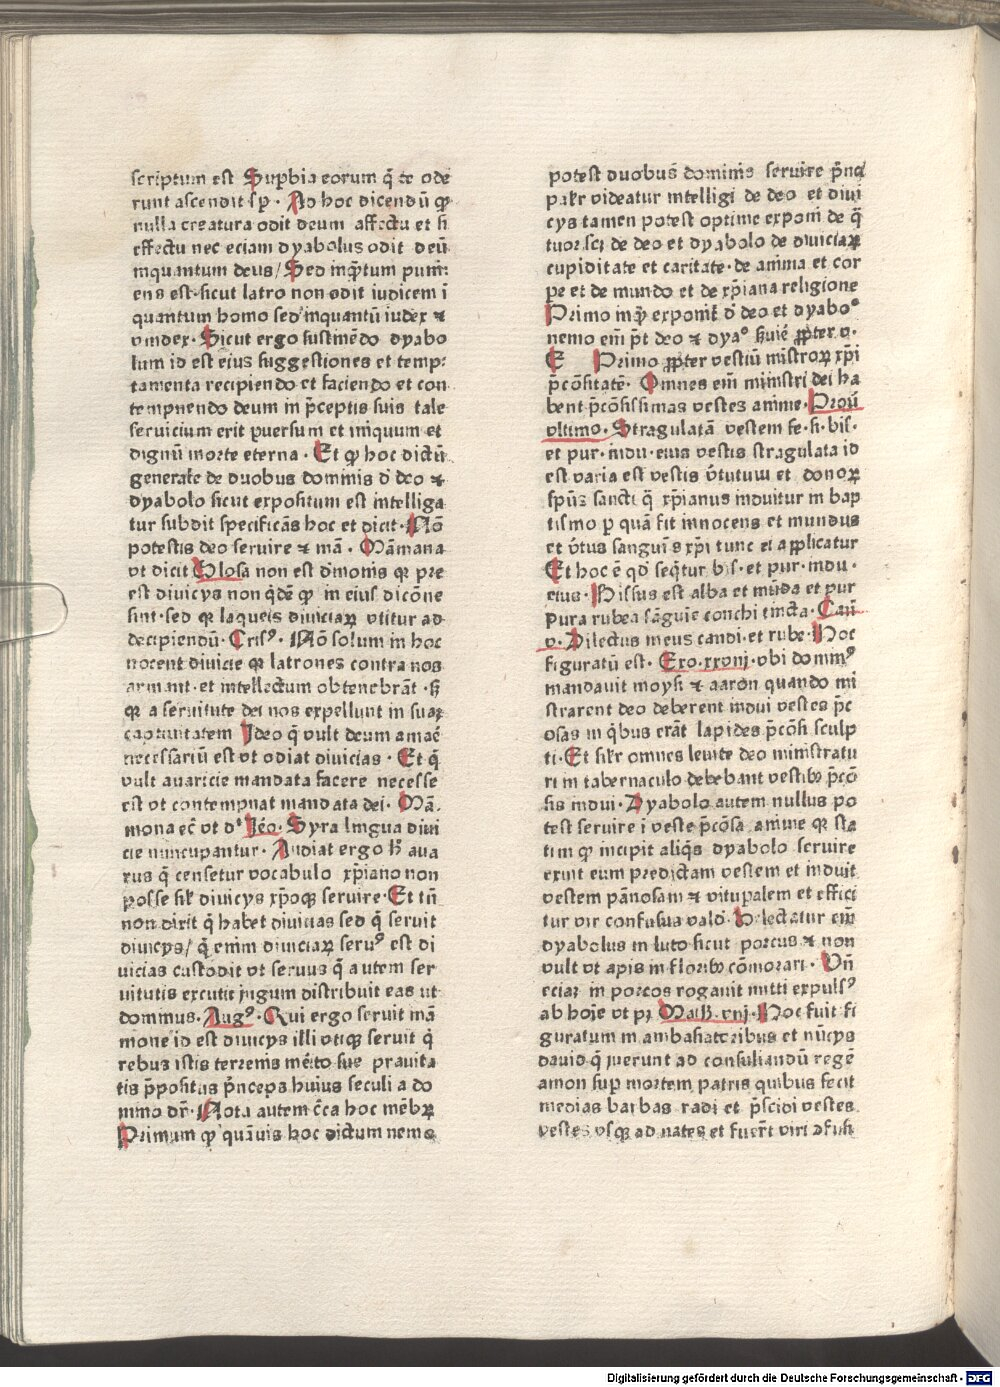 scriptum est Supbia eorum q̄ te ode
runt ascendit sp̄. Ad hoc dicendū ꝙ
nulla creatura odit deum affectu et si
effectu nec eciam dyabolus odit deū
inquantum deus/ Sed inq̄tum puni:
ens est. sicut latro non odit iudicem i
quantum homo sed inquantū iudex ⁊
vindex. Sicut ergo sustinēdo dyabo
lum id est eius suggestiones et temp:
tamenta recipiendo et faciendo et con
tempnendo deum in p̄ceptis suis tale
seruicium erit puersum et iniquum et
dignū morte eterna. Et ꝙ hoc dictū
generate de duobus dominis ō deo ⁊
dyabolo sicut expositum est intelliga
tur subdit specificās hoc et dicit. Nō
potestis deo seruire ⁊ mā. Māmana
vt dicit Glosa non est dmonis qr pre
est diuicijs non qdē ꝙ in eius dicōne
sint. sed qr laqueis diuiciaꝝ vtitur ad
decipiendū. Crisꝰ. Nō solum in hoc
nocent diuicie qr latrones contra nos
armant. et intellectum obtenebrāt. sꝫ
qr a seruitute dei nos expellunt in suaꝝ
captiuitatem Ideo q̄ vult deum amaē
necessariū est vt odiat diuicias. Et q̄
vult auaricie mandata facere necesse
est vt contempnat mandata dei. Mā.
mona ec̄ vt dt Jēo. Syra lingua diui
cie nuncupantur. Audiat ergo h̄ aua
rus q̄ censetur vocabulo xp̄iano non
posse sil diuicijs xp̄oqꝫ seruire. Et tn̄
non dixit q̄ habet diuicias sed q̄ seruit
diuicijs/ q̄ enim diuiciaꝝ seruꝰ est di
uicias custodit vt seruus q̄ autem ser
uitutis excutit iugum distribuit eas ut
dominus. Augꝰ. Qui ergo seruit mā
mone id est diuicijs illi vtiqꝫ seruit q̄
rebus istis terrenis mēito sue prauita
tis p̄positus p̄nceps huius seculi a do
mino dr̄. Nota autem c̄ca hoc mēbꝝ
Primum ꝙ quāuis hoc dictum nemo
potest duobus dominis seruire p̄nc̄
palr videatur intelligi de deo et diui
cijs tamen potest optime exponi de q̄
tuor. scꝫ de deo et dyabolo de diuiciaꝝ
cupiditate et caritate. de anima et cor
pe et de mundo et de xp̄iana religione
Primo inq̄ exponit ō deo et dyaboꝰ
nemo em̄ pt̄ deo ⁊ dyaꝰ suiē ꝓpter v.
E Primo ꝓpter vestiū ministroꝝ xp̄i
p̄cōsitatē. Omnes em̄ ministri dei ha
bent p̄cōsissimas vestes anime. Prou
vltimo. Stragulatā vestem fe. si. bis.
et pur. indu. eius vestis stragulata id
est varia est vestis v̄tutum et donoꝝ
sp̄us sancti q̄ xp̄ianus induitur in bap
tismo p quā fit innocens et mundus
et v̄tus sanguis xp̄i tunc ei applicatur
Et hoc ē qd̄ seq̄tur bis. et pur. indu.
eius. Bissus est alba et mūda et pur
pura rubea sāguīe conchi tincta. Can̄
v. Dilectus meus candi. et rube. Hoc
figuratū est. Exo. xxviij. vbi dominꝰ
mandauit moysi ⁊ aaron quando mi
strarent deo deberent indui vestes p̄c
osas in q̄bus erāt lapides p̄cōsi sculp
ti. Et silr omnes leuite deo ministratu
ri in tabernaculo debebant vestibꝫ p̄cō
sis indui. Dyabolo autem nullus po
test seruire i veste p̄cōsa anime qr sta
tim ꝙ incipit aliq̄s dyabolo seruire
exuit eum predictam vestem et induit
vestem pānosam ⁊ vitupalem et effici
tur vir confusus valō. Delectatur em̄
dyabolus in luto sicut porcus ⁊ non
vult vt apis in floribꝫ cōmorari. Vn̄
eciaꝫ in porcos rogauit mitti expulsꝰ
ab hoīe vt pꝫ Math. viij. Hoc fuit fi
guratum in ambasiatoribus et nūcijs
dauid q̄ iuerunt ad consulandū regē
amon sup mortem patris quibus fecit
medias barbas radi et p̄scidi vestes
vestes vsqꝫ ad nates et fuer̄t viri ꝯfusi
Digitalisierung gefördert durch die Deutsche Forschungsgemeinschaft - DFG